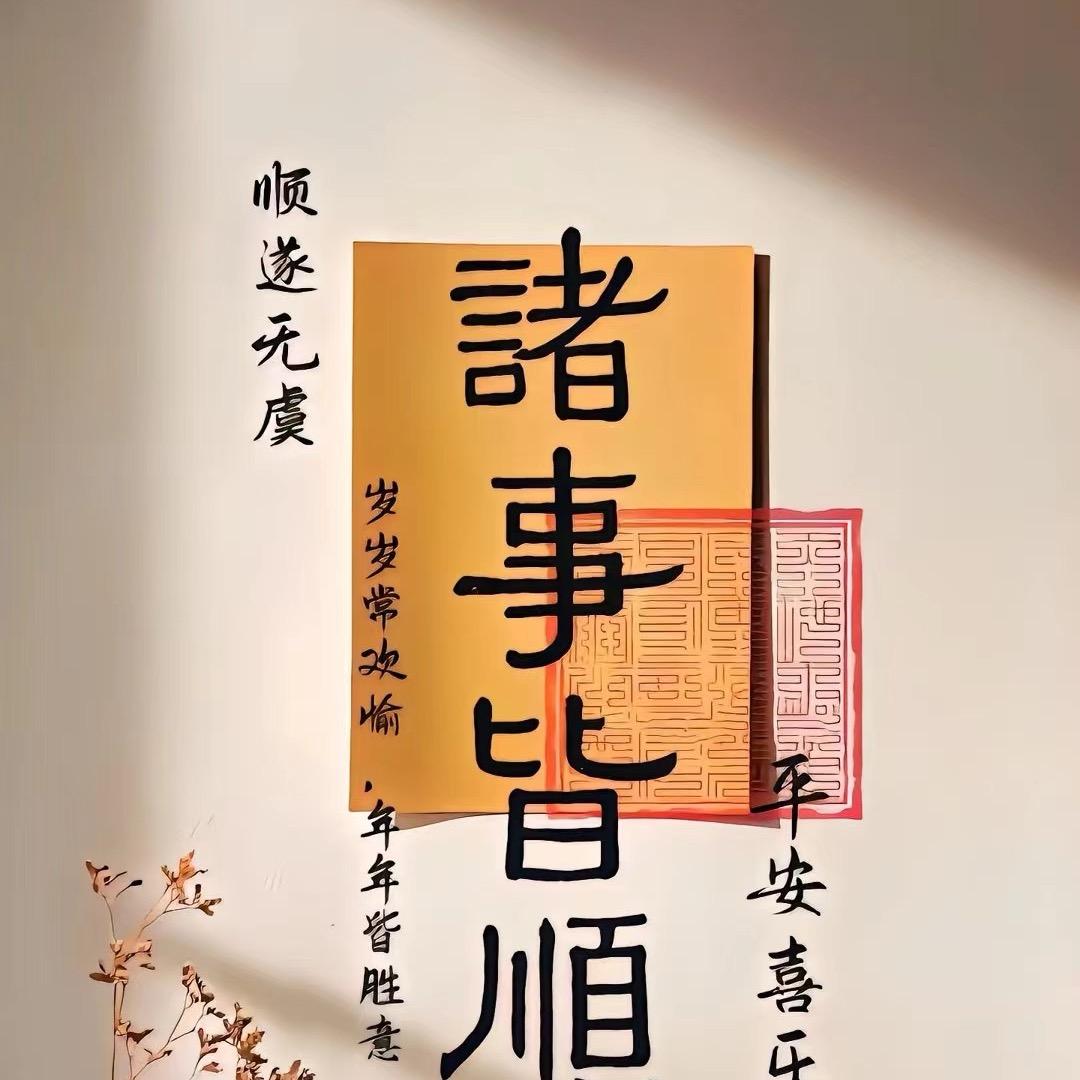 顺遂无虞
諸事皆順
岁岁常欢愉
，年年皆胜意
平安喜乐